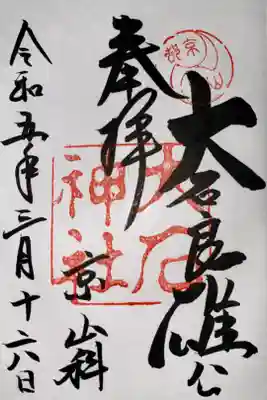 大石良雄公
奉拝
大石
神社
京
山科
令和五年三月十六日